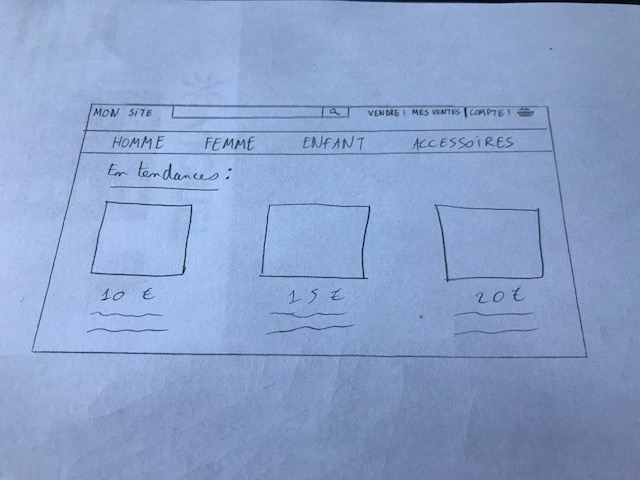 MON SITE VENDRE | MES VENTES | COMPTE |
HOMME FEMME ENFANT ACCESSOIRES
En tendances :
10 € 15 € 20 €